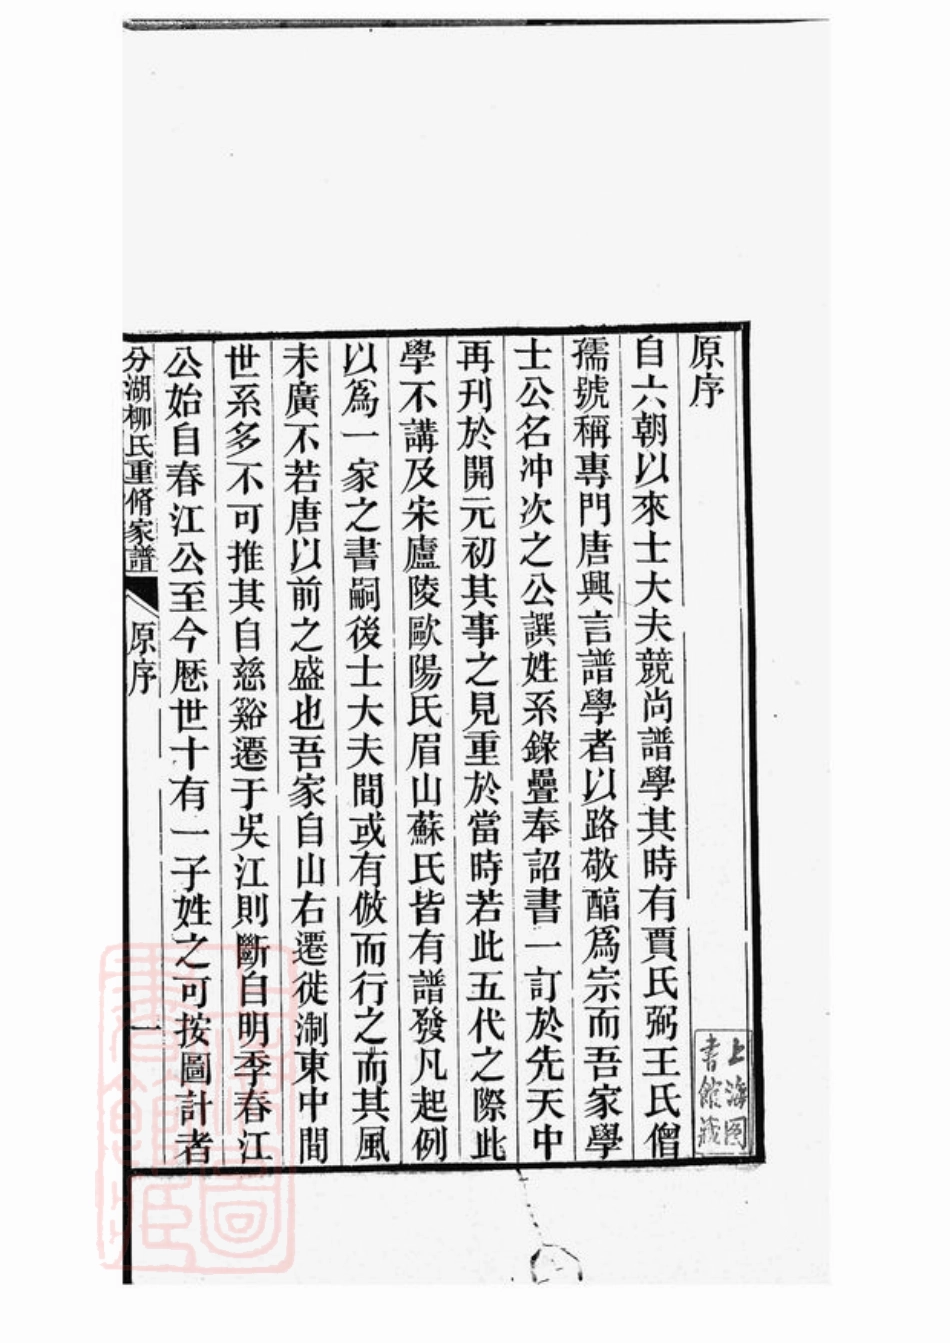 原序
自六朝以來士大夫競尚譜學其時有賈氏弼王氏僧
孺號稱專門唐興言譜學者以路敬醕爲宗而吾家學
士公名冲次之公譔姓系錄疊奉詔書一訂於先天中
再刊於開元初其事之見重於當時若此五代之際此
學不講及宋廬陵歐陽氏眉山蘇氏皆有譜發凡起例
以爲一家之書嗣後士大夫間或有倣而行之而其風
未廣不若唐以前之盛也吾家自山右遷徙淛東中間
世系多不可推其自慈谿遷于吳江則斷自明季春江
公始自春江公至今厯世十有一子姓之可按圖計者
分湖柳氏重脩家譜
原序
一
上海圖
書館藏
上海圖
書館藏